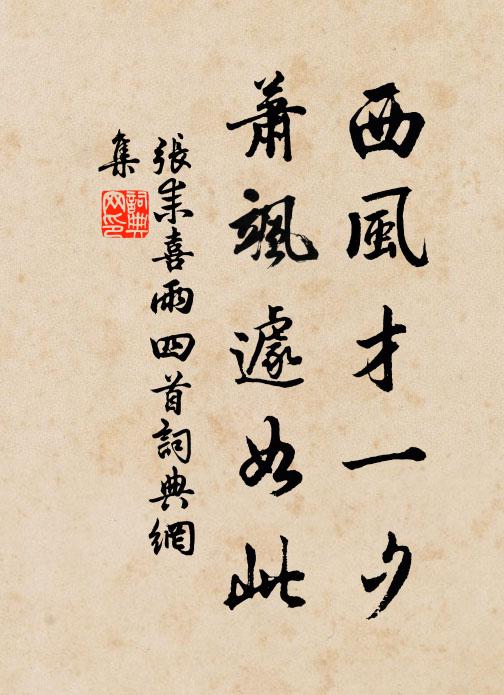 西風才一夕
蕭颯遽如此
張耒喜雨四首詞典網
集
詞典
网印